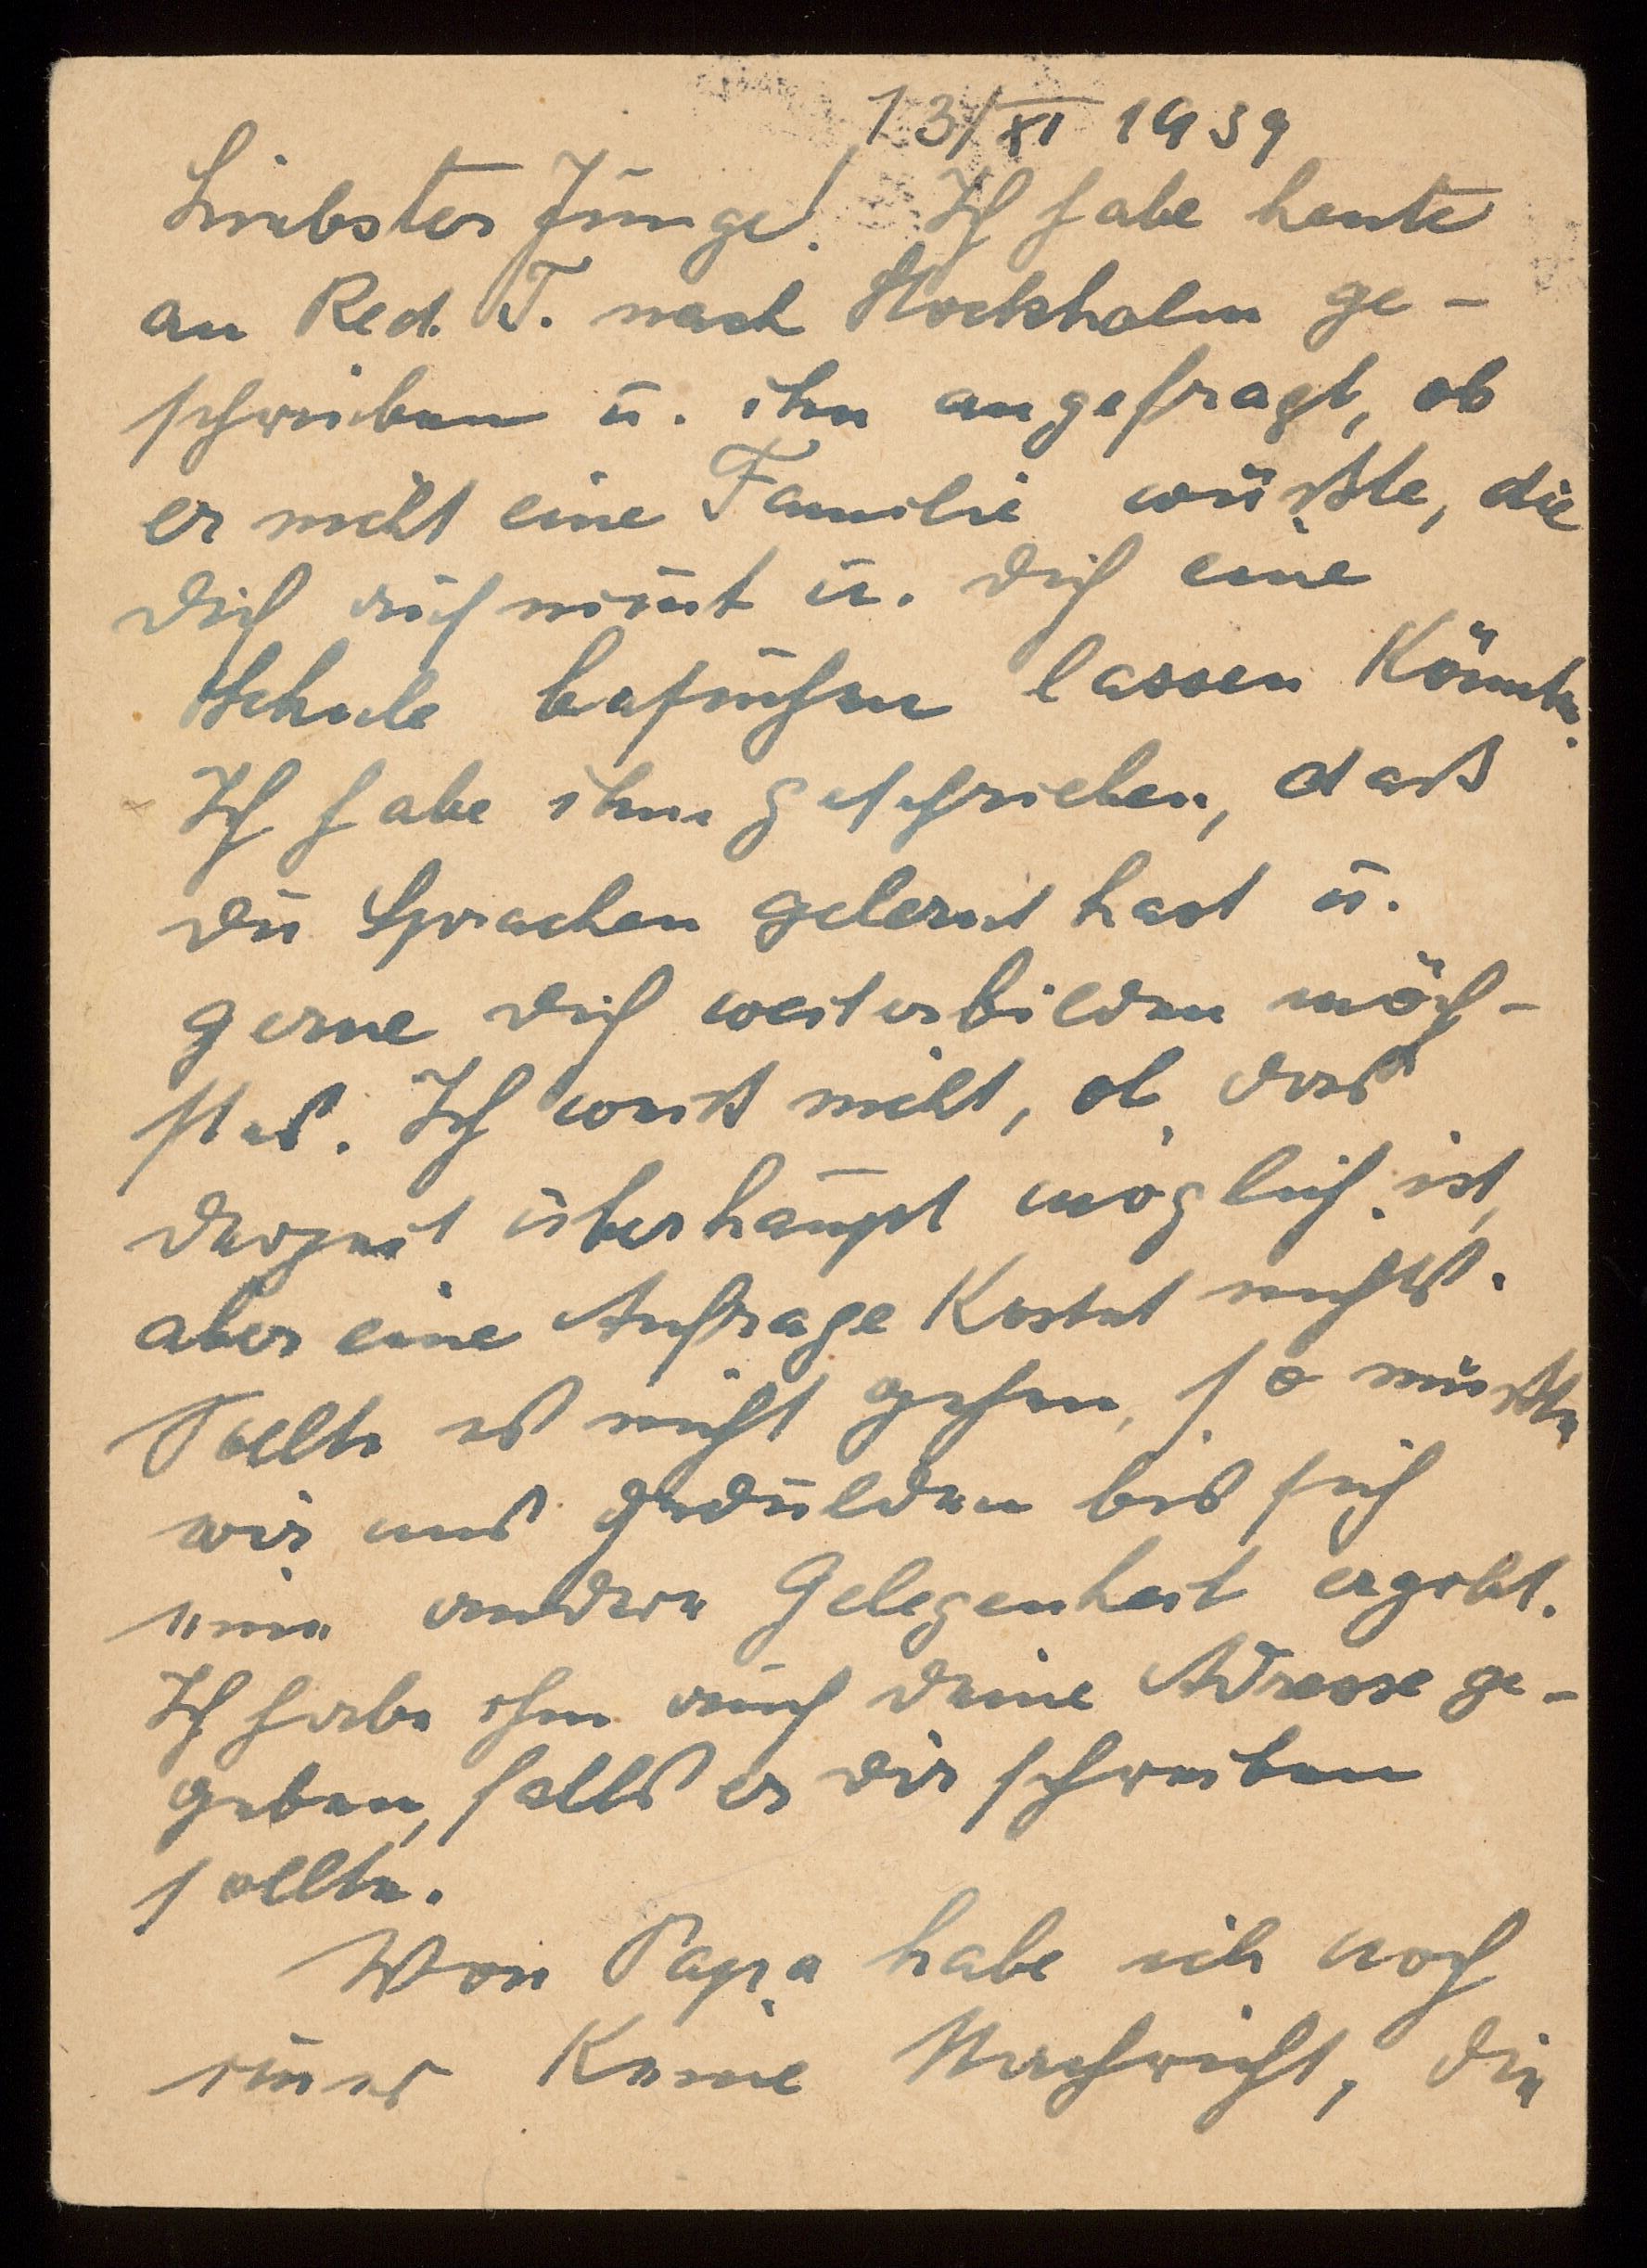 13/XI 1939
Liebster Junge! Ich habe heute
an Red. T. nach Stockholm ge-
schrieben u. ihn angefragt, ob
er nicht eine Familie wüßte, die
dich aufnimt u. dich eine
Schule besuchen lassen könnte.
Ich habe ihm geschrieben, daß
du Sprachen gelernt hast u.
gerne dich weiterbilden möch-
test. Ich weiß nicht, ob das
derzeit überhaupt möglich ist,
aber eine Anfrage kostet nichts.
Sollte es nicht gehen, so müßten
wir uns gedulden bis sich
eine andere Gelegenheit ergebt.
Ich habe ihm auch deine Adresse ge-
geben, falls er dir schreiben
sollte.
Von Papa habe ich noch
immer keine Nachricht, die